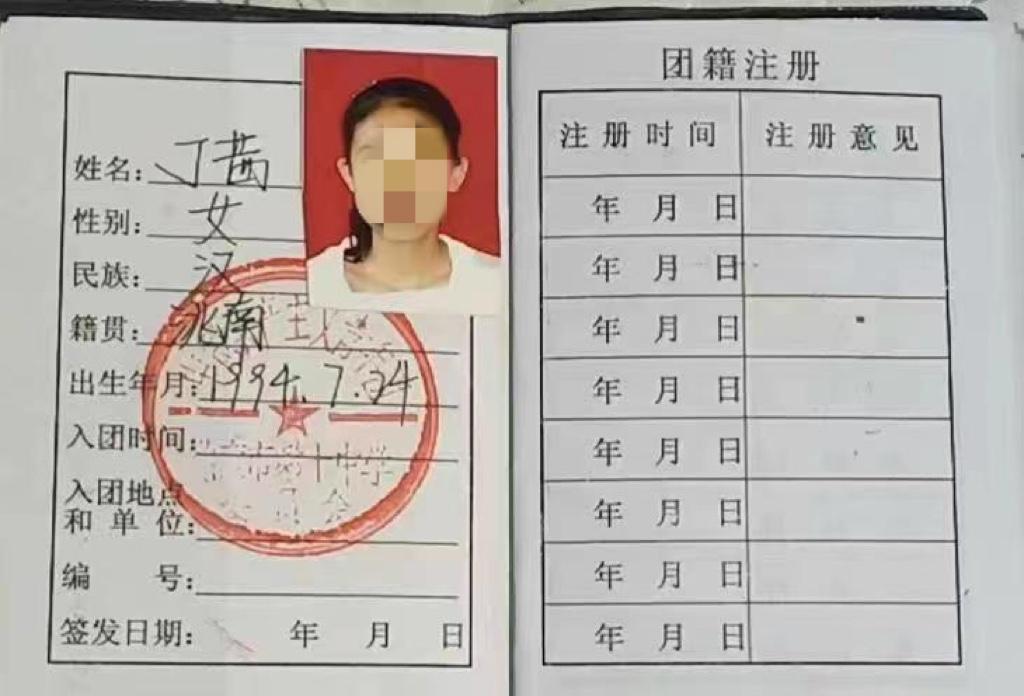 姓名:丁茜
性别:女
民族:汉
籍贯:洮南
出生年月:1994.7.24
入团时间:
入团地点
和单位:
编 号:
签发日期: 年 月 日
团籍注册
注册时间 注册意见
年 月 日
年 月 日
年 月 日
年 月 日
年 月 日
年 月 日
年 月 日
年 月 日